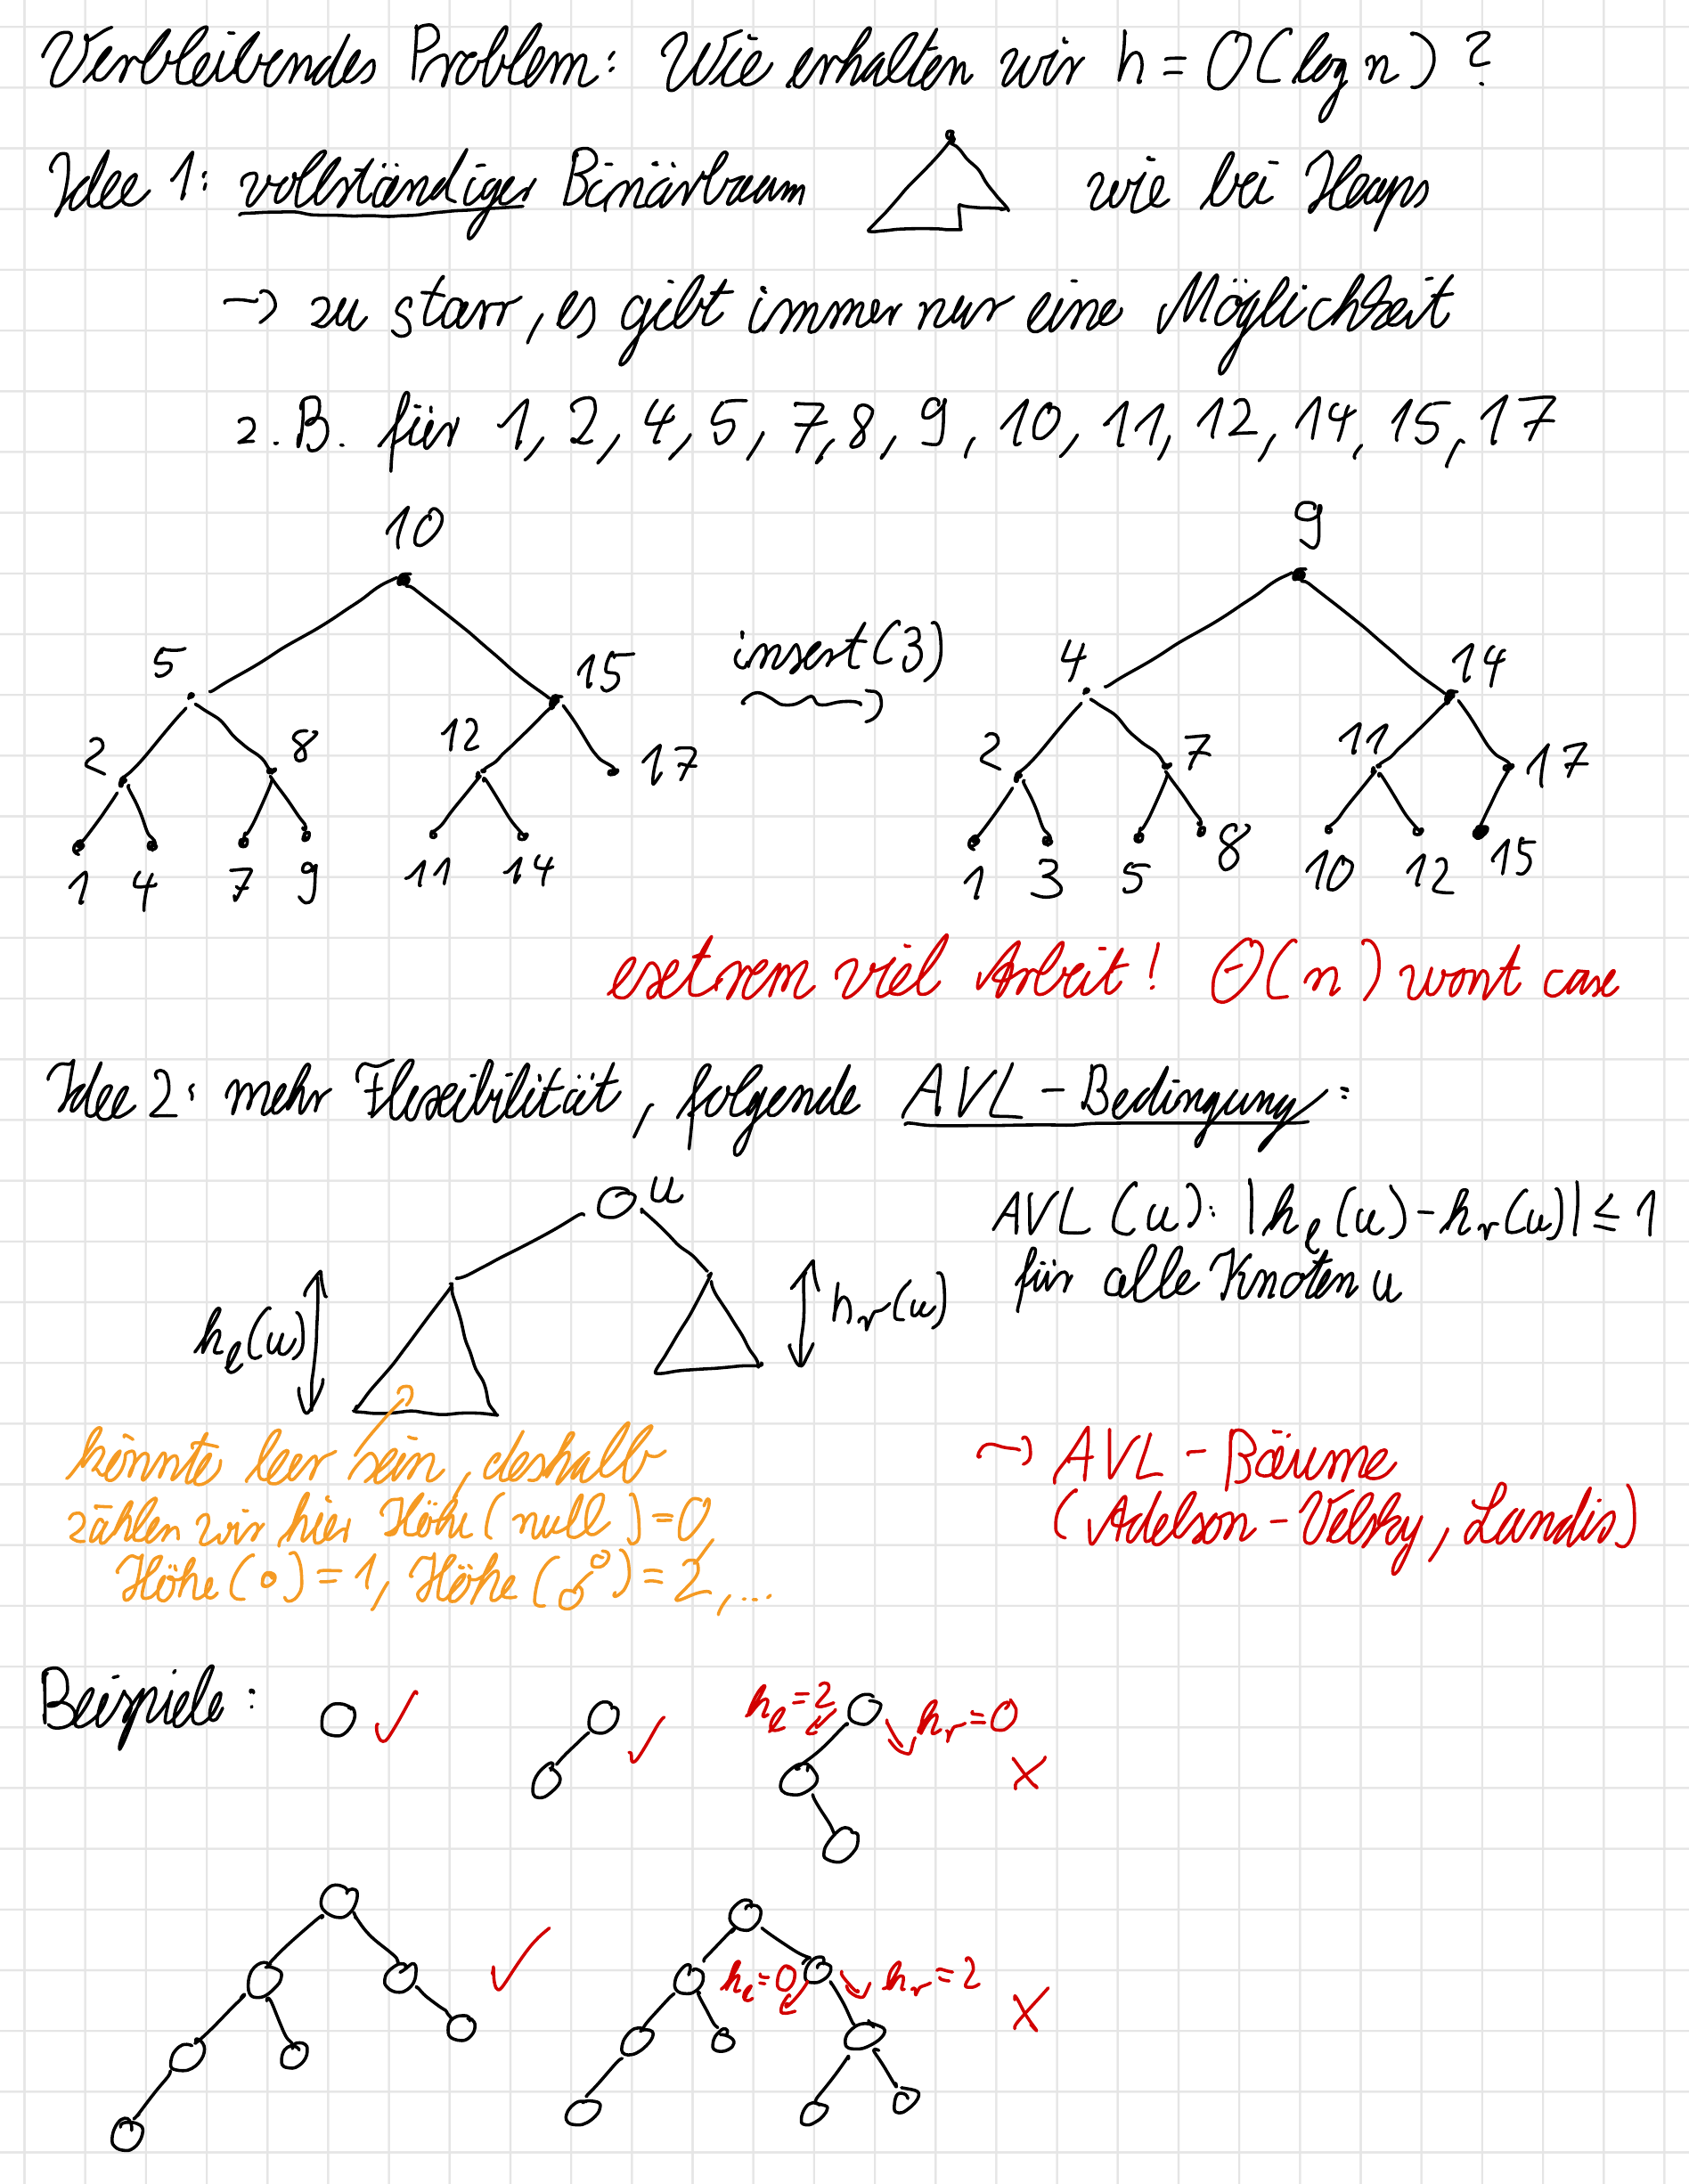 Verbleibendes Problem: Wie erhalten wir h = O(log n) ?
Idee 1: vollständiger Binärbaum wie bei Heaps
→ zu starr, es gibt immer nur eine Möglichkeit
z.B. für 1, 2, 4, 5, 7, 8, 9, 10, 11, 12, 14, 15, 17
10 9
5 15 insert(3) 4 14
2 8 12 17 2 7 11 17
1 4 7 9 11 14 1 3 5 8 10 12 15
extrem viel Arbeit! Θ(n) worst case
Idee 2: mehr Flexibilität, folgende AVL-Bedingung:
u
AVL(u): |hₗ(u) - hᵣ(u)| ≤ 1
für alle Knoten u
hₗ(u) hᵣ(u)
könnte leer sein, deshalb
zählen wir hier Höhe(null) = 0,
Höhe( ) = 1, Höhe( ) = 2, ...
→ AVL-Bäume
(Adelson-Velsky, Landis)
Beispiele: ✓ ✓ hₗ=2 hᵣ=0 ✗
✓ hₗ=0 hᵣ=2 ✗